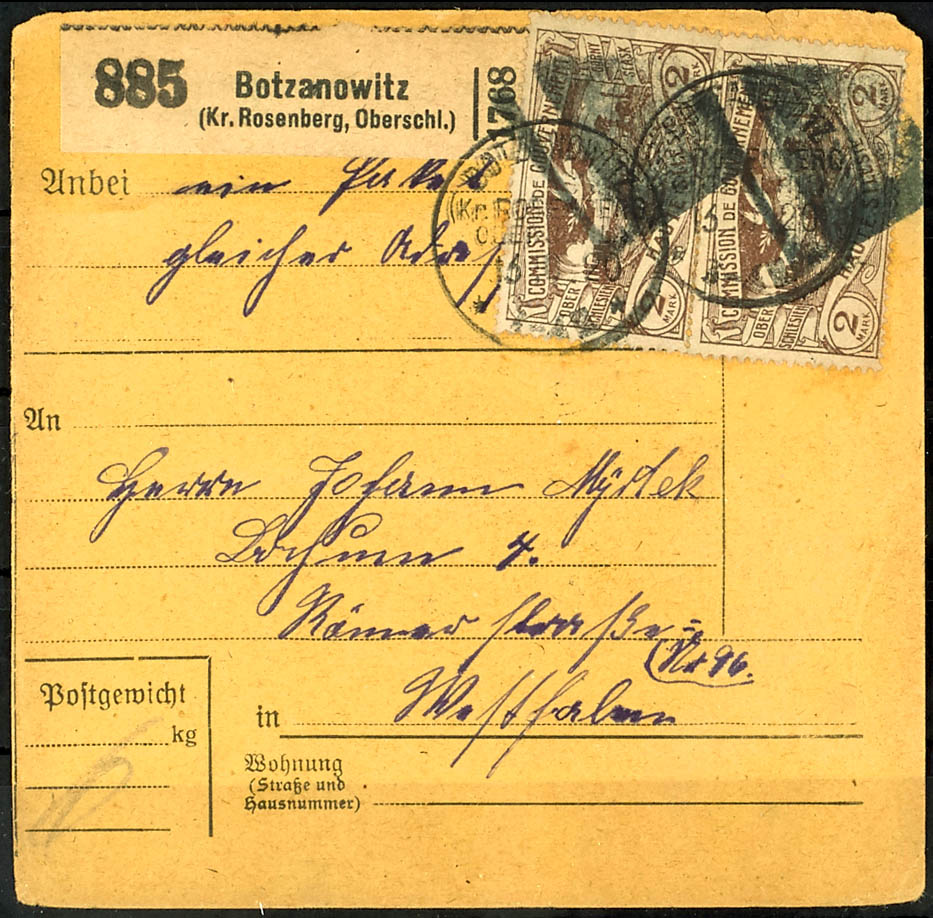 885 Botzanowitz
(Kr. Rosenberg, Oberschl.)
1768
COMMISSION DE GOUVERNEMENT
OBER
SCHLESIEN
2 MARK
2
COMMISSION DE GOUVERNEMENT
HAUTE SILÉSIE
OBER
SCHLESIEN
2 MARK
2
Anbei ein Paket
gleicher Adr
An
Herrn Johann Mystek
Bochum 4.
Römer straße
Nr 96.
in Westfalen
Postgewicht
kg
Wohnung
(Straße und
Hausnummer)